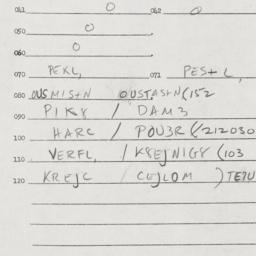 041 0 042 0
050 0
060 0
070 PEKL, 072 PESTL,
080 OUSMISTN OUSTASTN(152
090 PIK8 / DAM3
100 HARC / POU3R(212030
110 VERFL, / K8EJNIG8 (103
120 KREJC / CEJLOM )TE7U